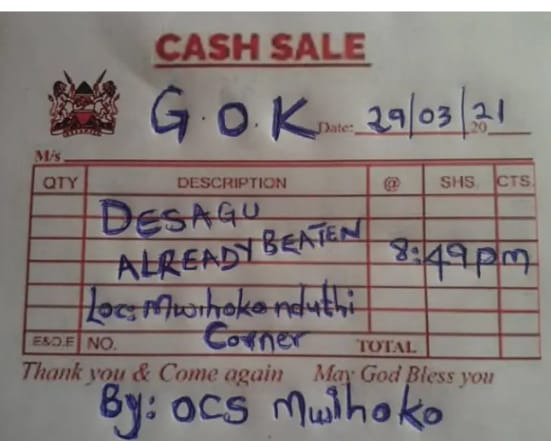 CASH SALE
G.O.K Date: 29/03/2021
M/s
QTY DESCRIPTION @ SHS. CTS.
DESAGU
ALREADY BEATEN 8:49pm
Loc: Mwihoko nduthi
Corner
E&O.E NO. TOTAL
Thank you & Come again May God Bless you
By: OCS Mwihoko